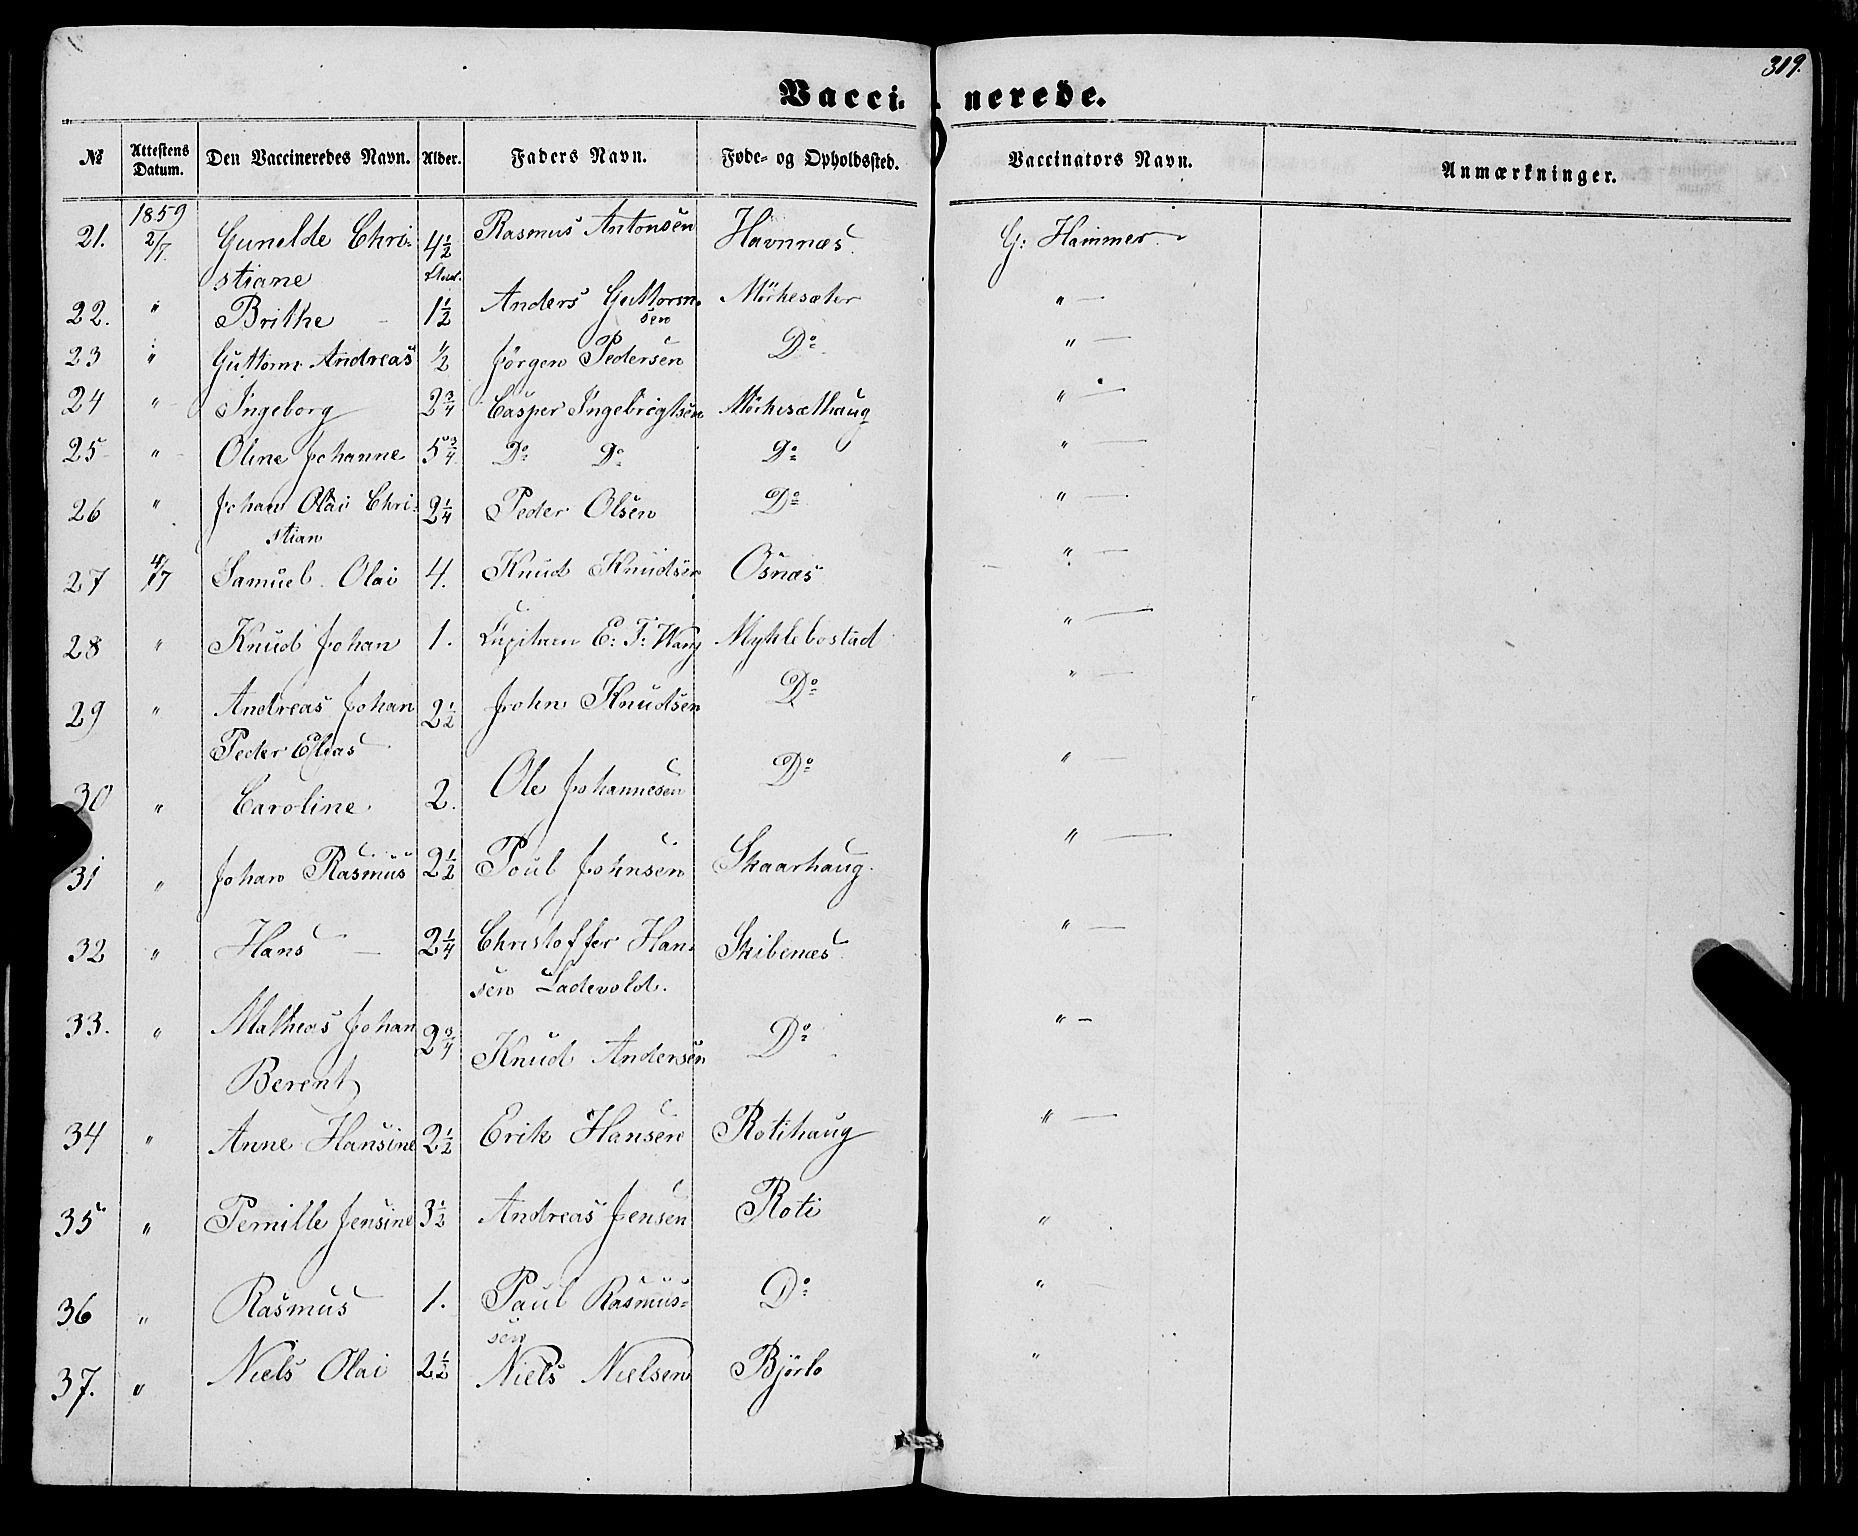 319.
Vaccinerede.
№ Attestens Datum. Den Vaccineredes Navn. Alder. Faders Navn. Føde- og Opholdssted. Vaccinators Navn. Anmærkninger.
1859
21. 2/7 Gunelde Chri- 4½ Rasmus Antonsen Havnnæs. G: Hammer.
stiane
22. " Brithe – 1½ Anders Guttorm- Mörkesæter " —
sen
23 " Guttorm Andreas ½ Jörgen Pedersen Do " —
24 " Ingeborg 2¾ Casper Ingebrigtsen Mörkesæthaug " —
25 " Oline Johanne 5¾ Do Do Do " —
26 " Johan Olai Chri- 2¼ Peder Olsen Do " —
stian
27 4/7 Samuel Olai 4. Knud Knudsen Osnæs " —
28 " Knud Johan 1. E: T: Wang Myklebostad " —
29 " Andreas Johan 2½ John Knudsen Do " —
Peder Elias
30 " Caroline 2. Ole Johannesen Do " —
31 " Johan Rasmus 2½ Poul Johnsen Skaarhaug. " —
32 " Hans — 2¼ Christoffer Han- Skibenæs " —
sen Ladevold.
33. " Matheas Johan 2¾ Knud Andersen Do " –
Berent
34 " Anne Hansine 2½ Erik Hansen Rotihaug " —
35 " Pernille Jensine 3½ Andreas Jensen Roti "
36 " Rasmus 1. Paul Rasmus- Do "
sen
37. " Niels Olai 2½ Niels Nielsen Björlo "